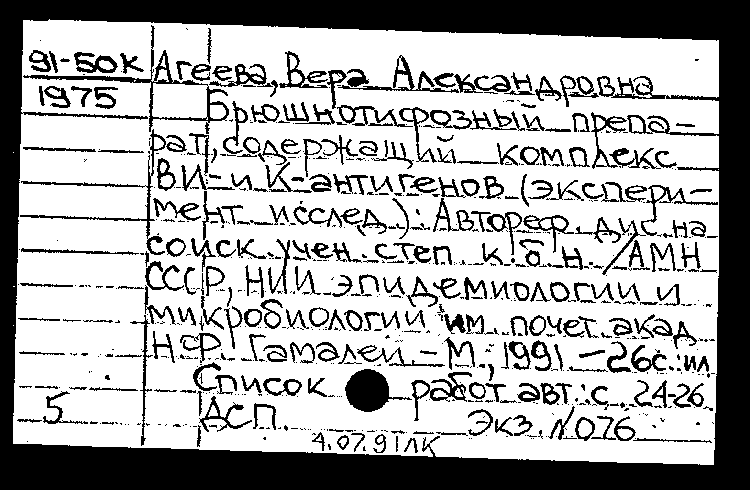 91-50К Агеева, Вера Александровна
1975 Брюшнотифозный препа-
рат, содержащий комплекс
ВИ- и К-антигенов (экспери-
мент. исслед.): Автореф. дис. на
соиск. учен. степ. к. б. н. / АМН
СССР, НИИ эпидемиологии и
микробиологии им. почет. акад.
Н.Ф. Гамалеи. - М., 1991. - 26с.: ил
Список работ авт.: с. 24-26
5 ДСП. Экз. N 076
4.07.91 ЛК